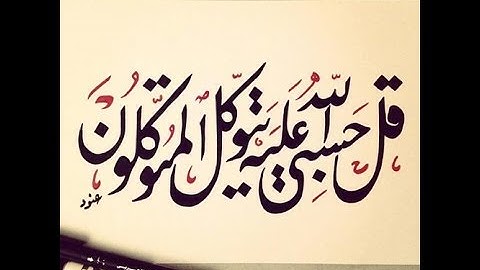 قل حسبي الله عليه يتوكل المتوكلون
عنود